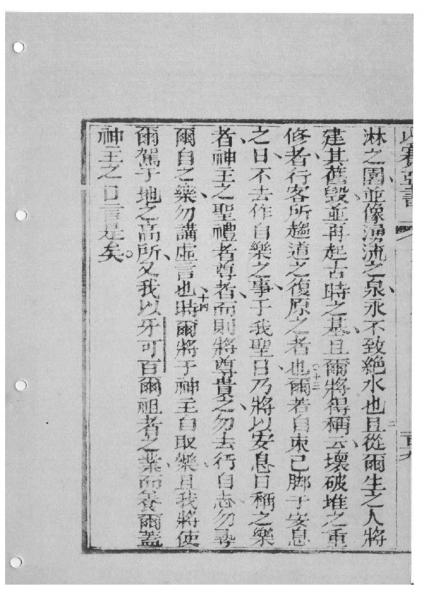 淋之園並像湧流之泉永不致絕水也且從爾生之人將
建其舊毀並再起古時之基且爾將得稱云壞破堆之重
修者行客所趨道之復原之者也爾若自束己脚于安息
十三
之日不去作自樂之事于我聖日乃將以安息日稱之樂
者神王之聖禮者尊者而則將尊貴之勿去行自志勿尋
爾自之樂勿講虛言也時爾將于神王自取樂且我將使
十四
爾駕于地之高所又我以牙可百爾祖者之業而養爾蓋
神王之口言是矣